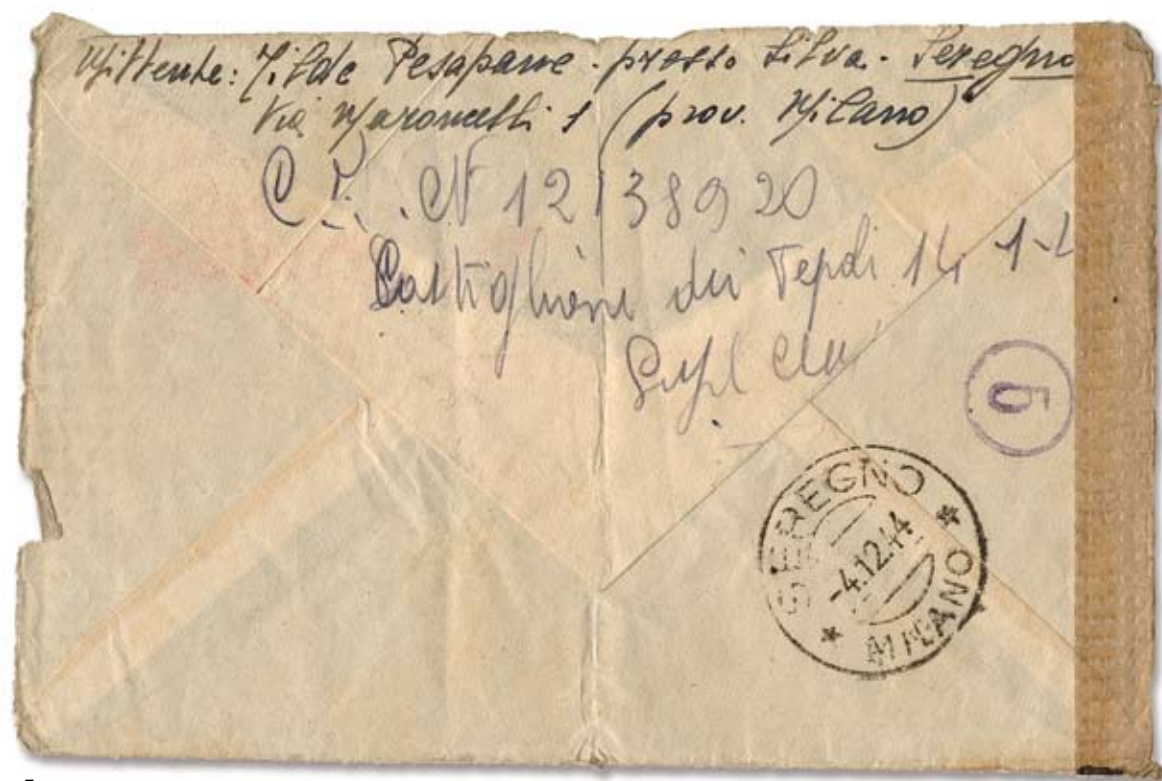 Mittente: Tilde Pesapane - presso Silva - Seregno
Via Maroncelli 1 (prov. Milano)
C. I. N 12138920
Castiglione dei Pepoli 14 1-
5
SEREGNO
-4.12.44
MILANO